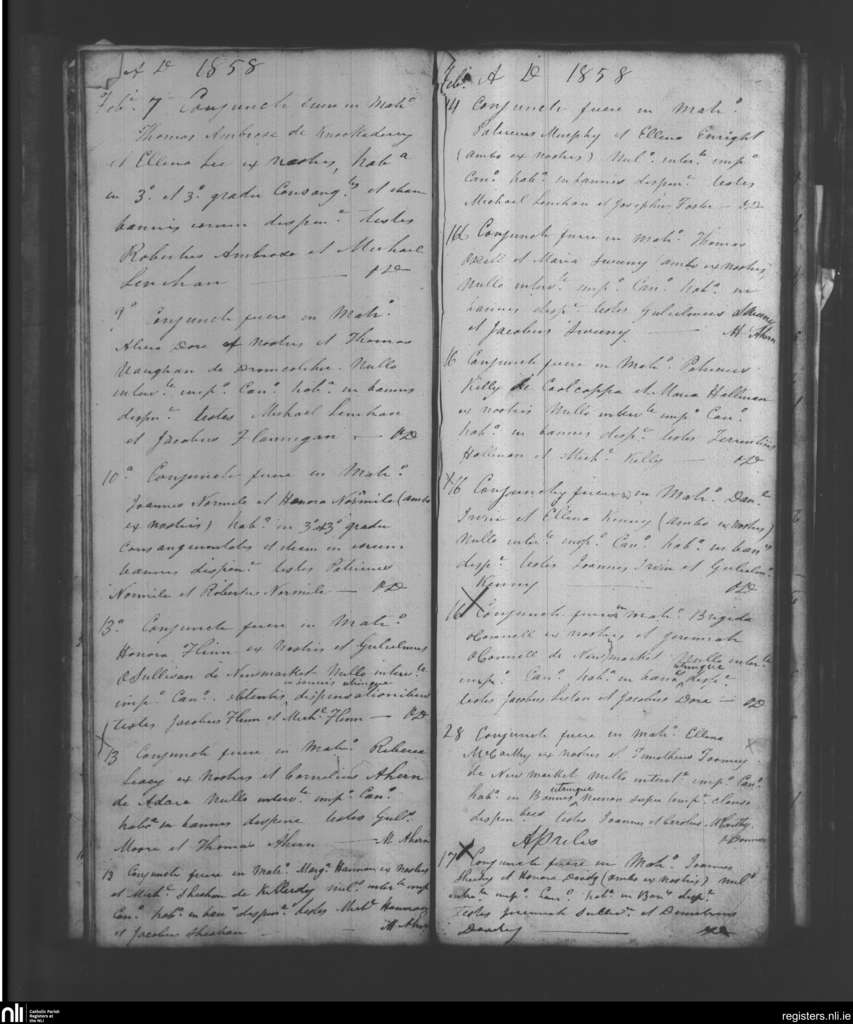 A D 1858
Feb. 7 Conjuncti fuere in Matr.o
Thomas Ambrose de Knockaderry
et Ellena Lee ex nostris, hab.a
in 3.o et 3.o gradu Consang.tis et etiam
bannis eorum dispen.e testes
Robertus Ambrose et Michael
Lenehan
9.o Conjuncti fuere in Matr.o
Alicia Dore ex nostris et Thomas
Vaughan de Dromcolcher. Nullo
inter.to imp.o Can.o hab.a in bannis
dispn.e testes Michael Lenehan
et Jacobus Flannigan — P D
10.o Conjuncti fuere in Matr.o
Joannes Normile et Honora Normile (ambo
ex nostris) hab.a in 3.o & 3.o gradu
Consanguinitatis et etiam in eorum
bannis dispen.e testes Patricius
Normile et Robertus Normile — P D
13.o Conjuncti fuere in Matr.o
Honora Flinn ex Nostris et Gulielmus
O Sullivan de Newmarket Nullo inter.to
imp.o Can.o obtentis in bannis utrinque dispensationibus
testes Jacobus Flinn et Mich.l Flinn — P D
13 Conjuncti fuere in Matr.o Rebecca
Leacy ex nostris et Cornelius Ahern
de Adare Nullo inter.to imp.o Can.o
hab.a in bannis dispene testes Gul.s
Moore et Thomas Ahern — M Ahern
13 Conjuncti fuere in Matr.o Marg.t Hannon ex Nostris
et Mich.l Sheehan de Killeedy nul.o inter.to imp.o
Can.o hab.a in ban.s dispen.e testes Mich.l Hannon
et Jacobus Sheehan M Ahern
Feb. A D 1858
14 Conjuncti fuere in Matr.o
Patricius Murphy et Ellena Enright
(ambo ex nostris) Nul.o inter.to imp.o
Can.o hab.a in bannis dispen.e testes
Michael Lenehan et Josephus Foster — P D
16 Conjuncti fuere in Matr.o Thomas
et Maria Sweeny ambo ex nostris
Nullo inter.to imp.o Can.o hab.a in
bannis disp.e testes Gulielmus
et Jacobus Sweeny — M Ahern
16 Conjuncti fuere in Matr.o Patricius
Kelly de Coolcappa et Maria Hallinan
ex nostris Nullo inter.to imp.o Can.o
hab.a in bannis disp.e testes Terrentius
Hallinan et Mich.l Kelly — P D
X 16 Conjuncti fuere in Matr.o Dan.l
Irwin et Ellena Kenny (ambo ex nostris)
Nullo inter.to imp.o Can.o hab.a in ban.s
disp.e testes Joannes Irwin et Gulielm.s
Kenny P D
X 16 Conjuncti fuere in Matr.o Brigida
O Connell ex nostris et Jeremiah
O Connell de Newmarket Nullo inter.to
imp.o Can.o hab.a in bannis utrinque disp.e
testes Jacobus Liston et Jacobus Dore — P D
28 Conjuncti fuere in Matr.o Ellena
McCarthy ex nostris et Timotheus Toomey
de Newmarket Nullo inter.to imp.o Can.o
hab.a in Bannis utrinque necnon supra temp.s clauso
dispen.e testes Joannes et Carolus McCarthy
Aprilis
17 X Conjuncti fuere in Matr.o Joannes
Sheehy et Honora Doody (ambo ex nostris) nul.o
inter.to imp.o Can.o hab.a in Ban.s disp.e
testes Jeremiah et Demetrius
Doody — P D
nli Catholic Parish
Registers at
the NLI
registers.nli.ie